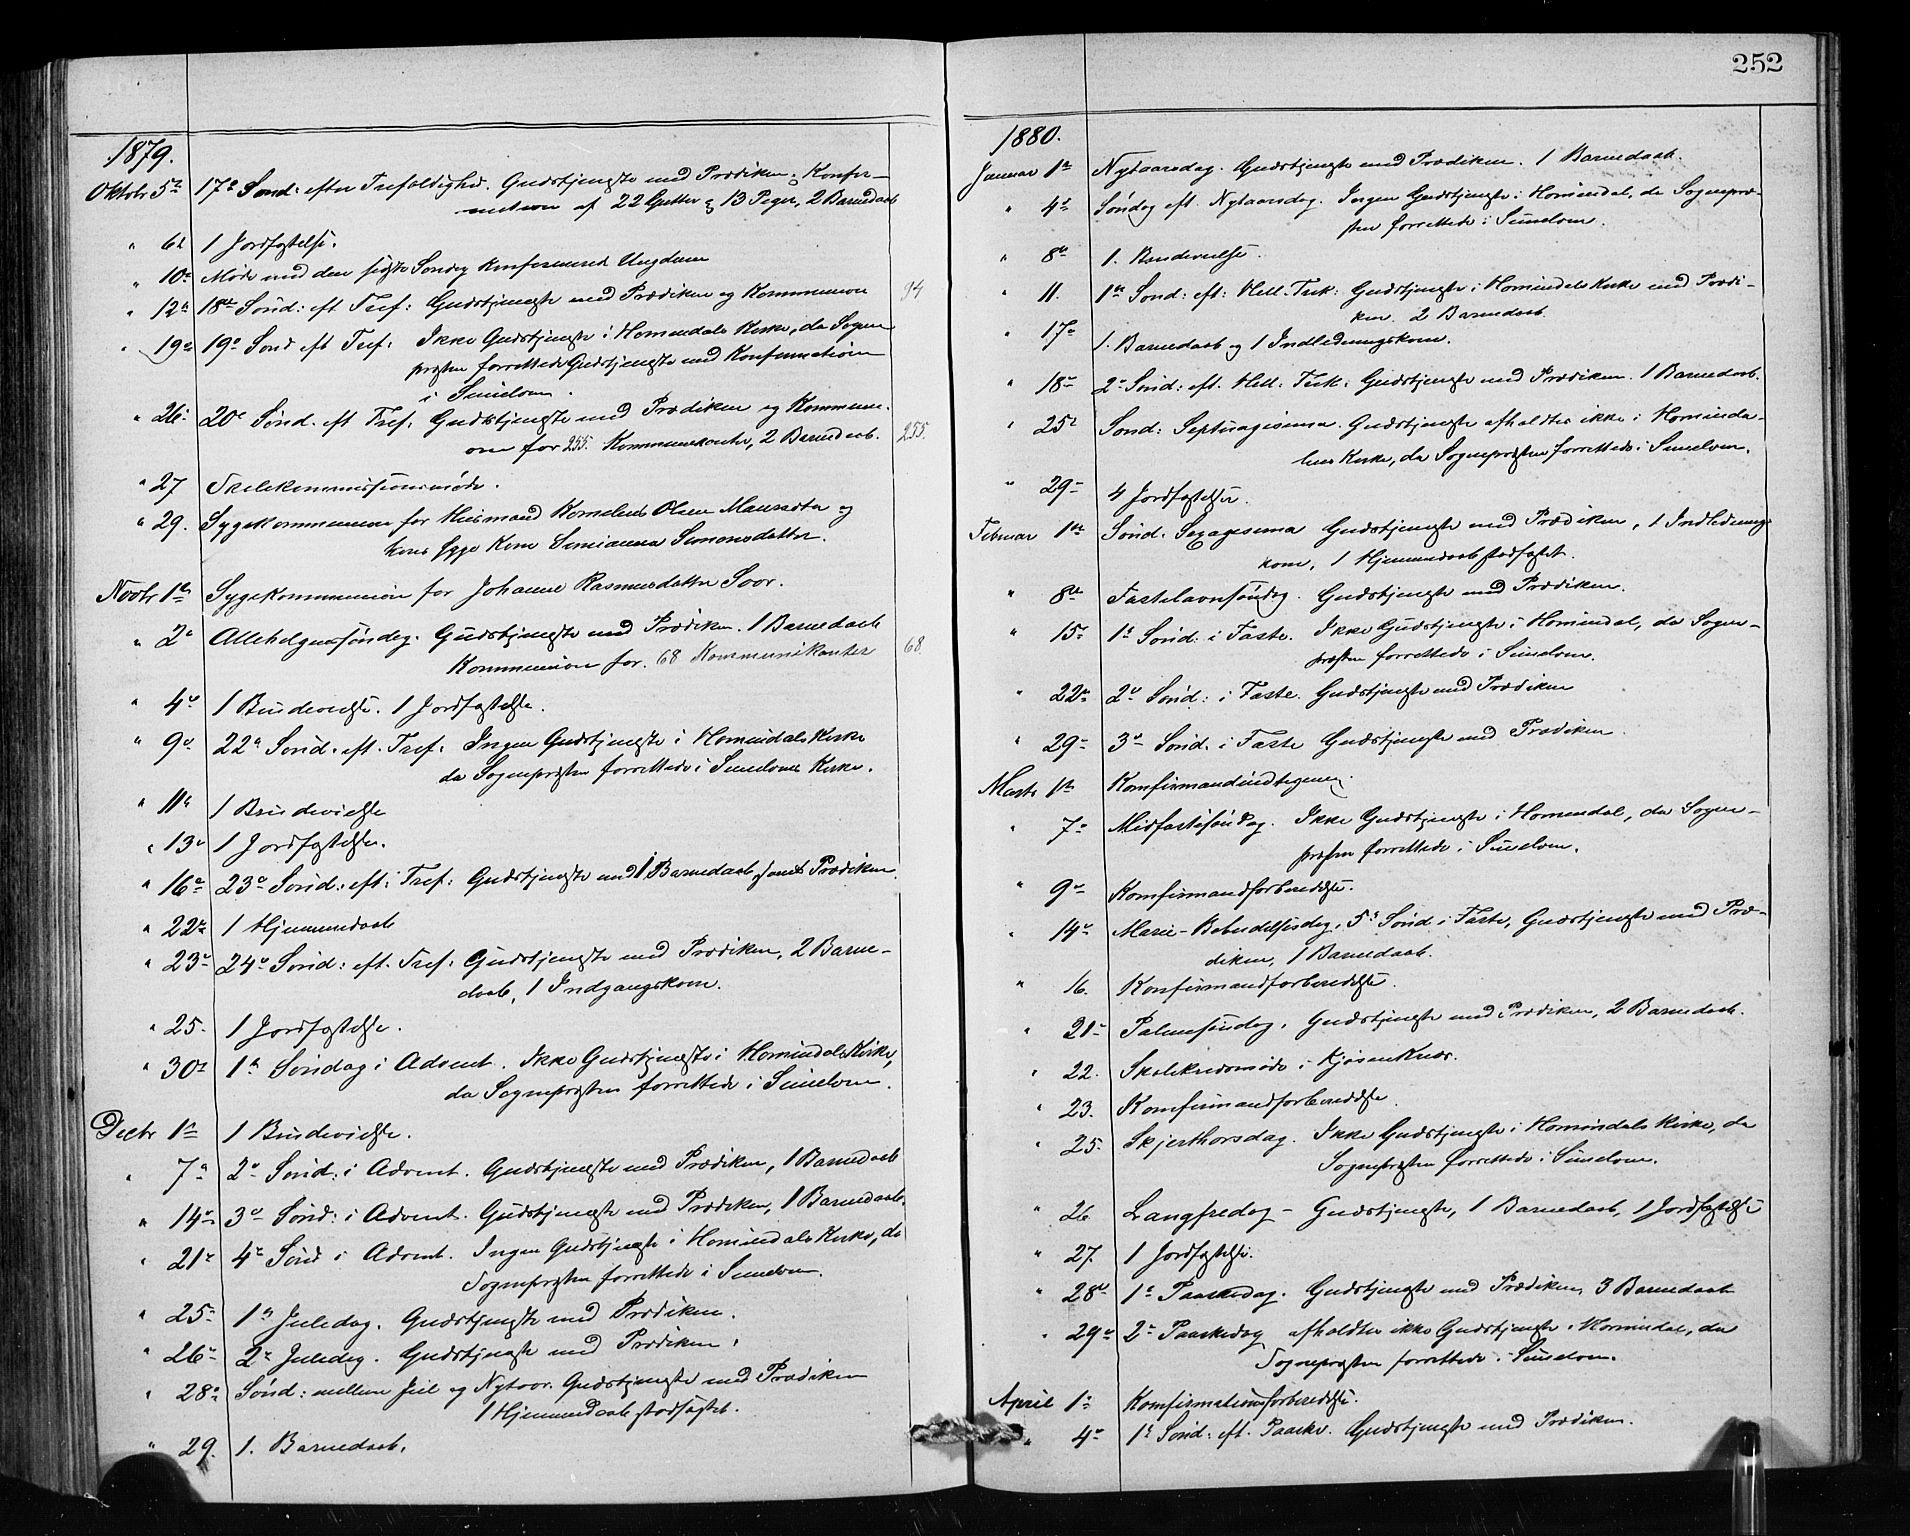 252
1879.
Oktbr 5te 17de Sønd: efter Trefoldighed. Gudstjeneste med Prædiken og Konfir-
mation af 22 Gutter og 13 Piger, 2 Barnedaab
" 6te 1 Jordfæstelse.
" 10de Møde med den sidste Søndag konfirmerede Ungdom
" 12te 18de Sønd: eft. Tref: Gudstjeneste med Prædiken og Kommunion 94
" 19de 19de Sønd eft Tref: Ikke Gudstjeneste i Hornindals Kirke, da Sogne
præsten forrettede Gudstjeneste med Konfirmation
i Sunelven.
" 26. 20de Sønd. eft Tref: Gudstjeneste med Prædiken og Kommuni-
on for 255 Kommunikanter, 2 Barnedaab. 255.
" 27 Skolekommissionsmøde.
" 29. Sygekommunion for Huusmand Kornelius Olsen Maurset og
hans syge Kone Simianna Simonsdatter.
Novbr 1te Sygekommunion for Johanne Rasmusdatter Soor.
" 2den Allehelgensøndag. Gudstjeneste med Prædiken. 1 Barnedaab
Kommunion for 68 Kommunikanter 68.
" 4de 1 Brudevielse. 1 Jordfæstelse.
" 9de 22de Sønd. eft. Tref: Ingen Gudstjeneste i Hornindals Kirke
da Sognepræsten forrettede i Sunelvens Kirke.
" 11te 1 Brudevielse
" 13de 1 Jordfæstelse.
" 16de 23de Sønd: eft: Tref: Gudstjeneste med 1 Barnedaab samt Prædiken.
" 22de 1 Hjemmedaab
" 23de 24de Sønd: eft. Tref: Gudstjeneste med Prædiken, 2 Barne-
daab, 1 Indgangskone.
" 25. 1 Jordfæstelse.
" 30te 1ste Søndag i Advent. Ikke Gudstjeneste i Hornindals Kirke,
da Sognepræsten forrettede i Sunelven.
Decbr 1ste 1 Brudevielse.
" 7de 2den Sønd: i Advent. Gudstjeneste med Prædiken, 1 Barnedaab
" 14de 3de Sønd: i Advent. Gudstjeneste med Prædiken, 1 Barnedaab.
" 21de 4de Sønd i Advent. Ingen Gudstjeneste i Hornindals Kirke, da
Sognepræsten forrettede i Sunelven.
" 25de 1ste Juledag. Gudstjeneste med Prædiken.
" 26de 2den Juledag. Gudstjeneste med Prædiken.
" 28de Sønd: mellem Jul og Nytaar. Gudstjeneste med Prædiken
1 Hjemmedaab stadfæstet.
" 29. 1. Barnedaab.
1880.
Januar 1ste Nytaarsdag. Gudstjeneste med Prædiken. 1 Barnedaab.
" 4de Søndag eft. Nytaarsdag. Ingen Gudstjeneste i Hornindal, da Sognepræ-
sten forrettede i Sunelven.
" 8de 1. Brudevielse.
" 11. 1ste Sønd: eft: Hell. Trek: Gudstjeneste i Hornindals Kirke med Prædi-
ken. 2 Barnedaab.
" 17de 1. Barnedaab og 1 Indledningskone.
" 18de 2den Sønd: eft. Hell: Trek: Gudstjeneste med Prædiken. 1 Barnedaab.
" 25de Sønd: Septuagesima. Gudstjeneste afholdtes ikke i Horninda-
lens Kirke, da Sognepræsten forrettede i Sunelven.
" 29de 4 Jordfæstelser.
Februar 1ste Sønd. Sexagesima Gudstjeneste med Prædiken, 1 Indlednings
kone, 1 Hjemmedaab stadfæstet.
" 8de Fastelavnsøndag. Gudstjeneste med Prædiken.
" 15de 1ste Sønd: i Faste. Ikke Gudstjeneste i Hornindal, da Sogne-
præsten forrettede i Sunelven.
" 22de 2den Sønd: i Faste. Gudstjeneste med Prædiken
" 29de 3de Sønd. i Faste Gudstjeneste med Prædiken.
Marts 1ste Konfirmandindtegning.
" 7de Midfastesøndag. Ikke Gudstjeneste i Hornindal, da Sogne-
præsten forrettede i Sunelven.
" 9de Konfirmandforberedelse.
" 14de Mariæ-Bebudelsesdag, 5te Sønd i Faste, Gudstjeneste med Præ-
diken, 1 Barnedaab.
" 16. Konfirmandforberedelse.
" 21de Palmesøndag. Gudstjeneste med Prædiken, 2 Barnedaab.
" 22. Skolekredsmøde i
" 23. Konfirmandforberedelse.
" 25. Skjærthorsdag. Ikke Gudstjeneste i Hornindals Kirke, da
Sognepræsten forrettede i Sunelven.
" 26 Langfredag - Gudstjeneste, 1 Barnedaab, 1 Jordfæstelse
" 27. 1 Jordfæstelse.
" 28de 1ste Paaskedag. Gudstjeneste med Prædiken, 3 Barnedaab
" 29de 2den Paaskedag afholdtes ikke Gudstjeneste i Hornindal, da
Sognepræsten forrettede i Sunelven.
April 1ste Konfirmationsforberedelse.
" 4de 1ste Sønd: eft. Paaske. Gudstjeneste med Prædiken.